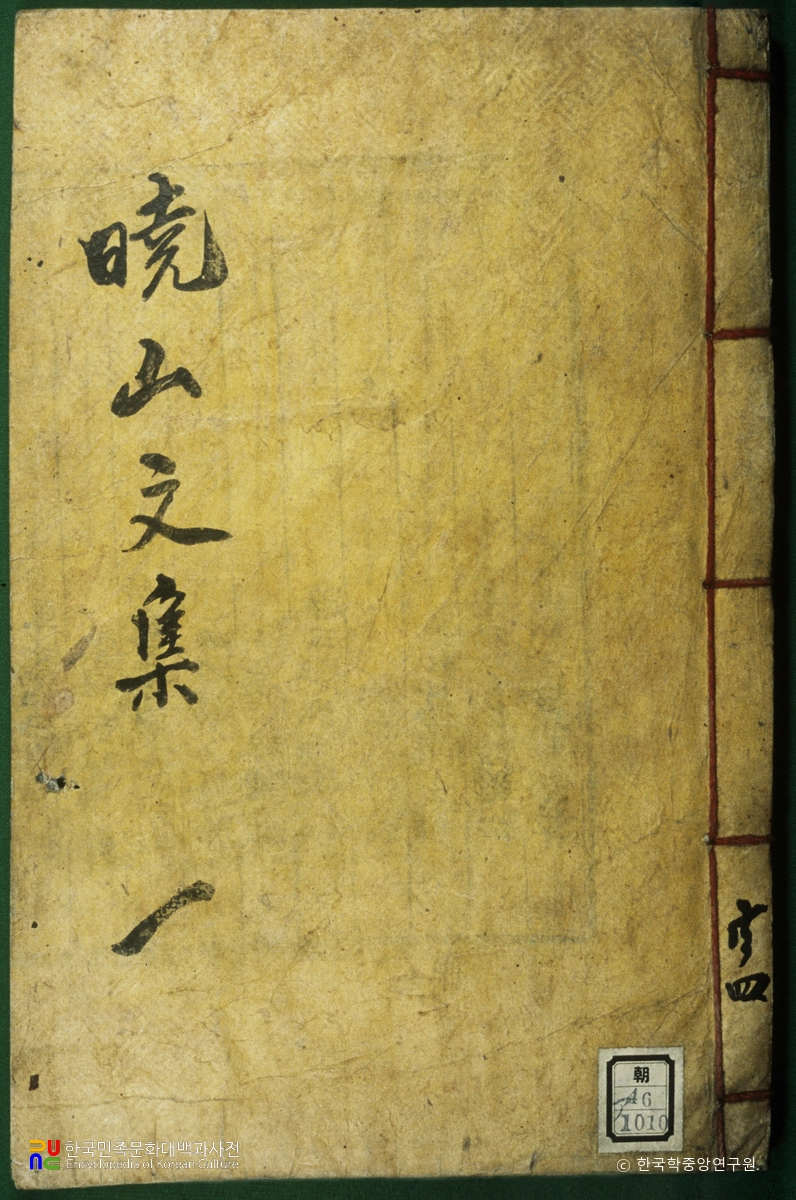 曉山文集 一
共四
朝
A6
1010
한국민족문화대백과사전
Encyclopedia of Korean Culture
© 한국학중앙연구원